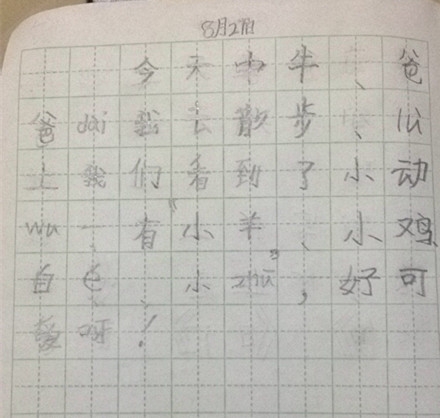 8月2日
今天中牛、爸
爸dài我去散步、山
上我们看到了小动
wu、有“小羊、小鸡、
白兔、小zhū”，好可
爱啊！